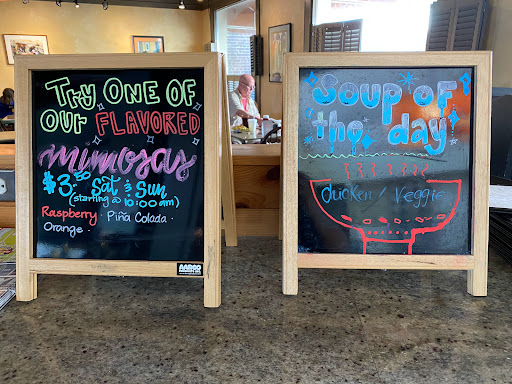 Try ONE OF
OUR FLAVORED
mimosas
$3.50 Sat & Sun
(starting @ 10:00am)
Raspberry · Piña Colada ·
Orange ·
AARCO
Soup of
tho day
chicken / veggie